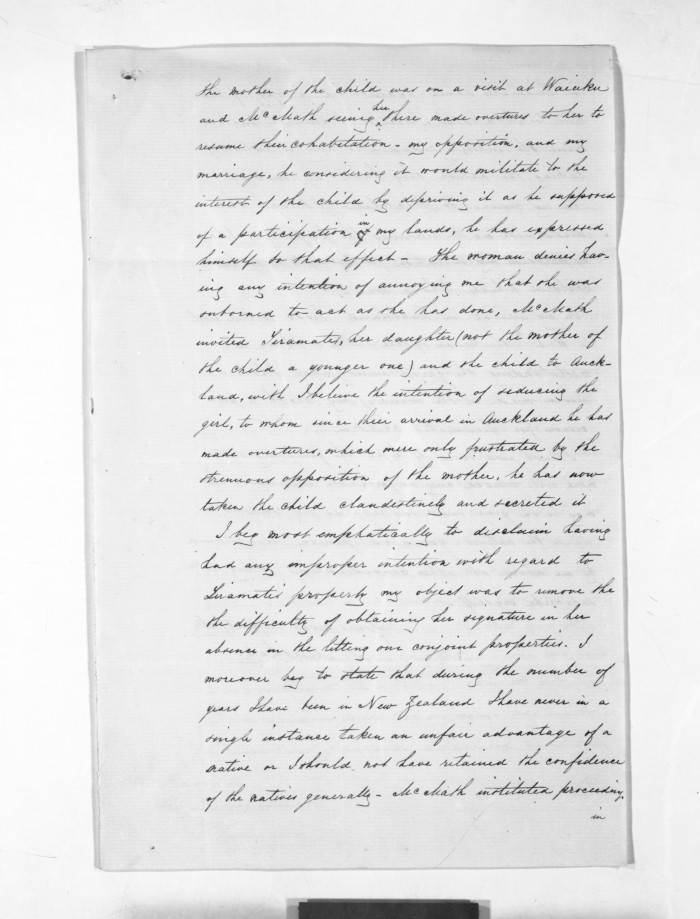 the mother of the child was on a visit at Waiuku
and McMath seeing her there made overtures to her to
resume their cohabitation - my opposition, and my
marriage, he considering it would militate to the
interest of the child by depriving it as he supposed
of a participation in my lands, he has expressed
himself to that effect - The woman denies hav-
ing any intention of annoying me that she was
suborned to act as she has done, McMath
invited Tiramate, her daughter (not the mother of
the child a younger one) and the child to Auck-
land, with I believe the intention of seducing the
girl, to whom since their arrival in Auckland he has
made overtures, which were only frustrated by the
strenuous opposition of the mother, he has now
taken the child clandestinely and secreted it
I beg most emphatically to disclaim having
had any improper intention with regard to
Tiramatis property my object was to remove the
the difficulty of obtaining her signature in her
absence in the letting our conjoint properties. I
moreover beg to state that during the number of
years I have been in New Zealand I have never in a
single instance taken an unfair advantage of a
native or I should not have retained the confidence
of the natives generally - McMath instituted proceeding
in